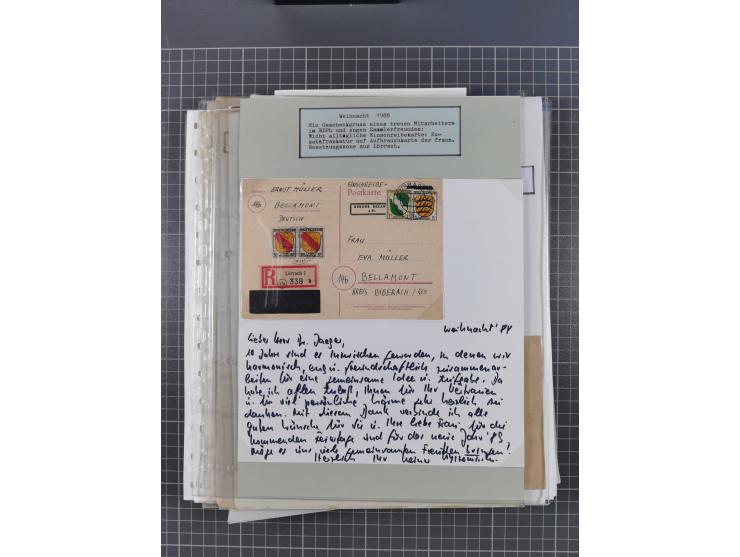 Weihnacht 1988
Ein Geschenkgruss eines treuen Mitarbeiters
im BDPh und engen Sammlerfreundes:
Nicht alltägliche Einschreibekarte: Zu-
satzfrankatur auf Aufbrauchkarte der franz.
Besatzungszone aus Lörrach.
EINSCHREIBE-
Postkarte
ERNST MÜLLER
14b BELLAMONT
DEUTSCH
GEBÜHR BEZAHLT
FRAU
EVA MÜLLER
14b BELLAMONT
KREIS BIBERACH/RISS
R Lörrach 1
338 b
Weihnacht '88
Lieber Herr Dr. Jaeger,
10 Jahre sind es inzwischen geworden, in denen wir
harmonisch, eng u. freundschaftlich zusammenar-
beiten für eine gemeinsame Idee u. Aufgabe. Da
habe ich allen Anlaß, Ihnen für Ihr Vertrauen
u. für viel persönliche Wärme sehr herzlich zu
danken. Mit diesem Dank verbinde ich alle
guten Wünsche für Sie u. Ihre liebe Frau für die
kommenden Feiertage und für das neue Jahr '89
Möge es uns viele gemeinsame Freuden bringen!
Herzlich Ihr Heinz